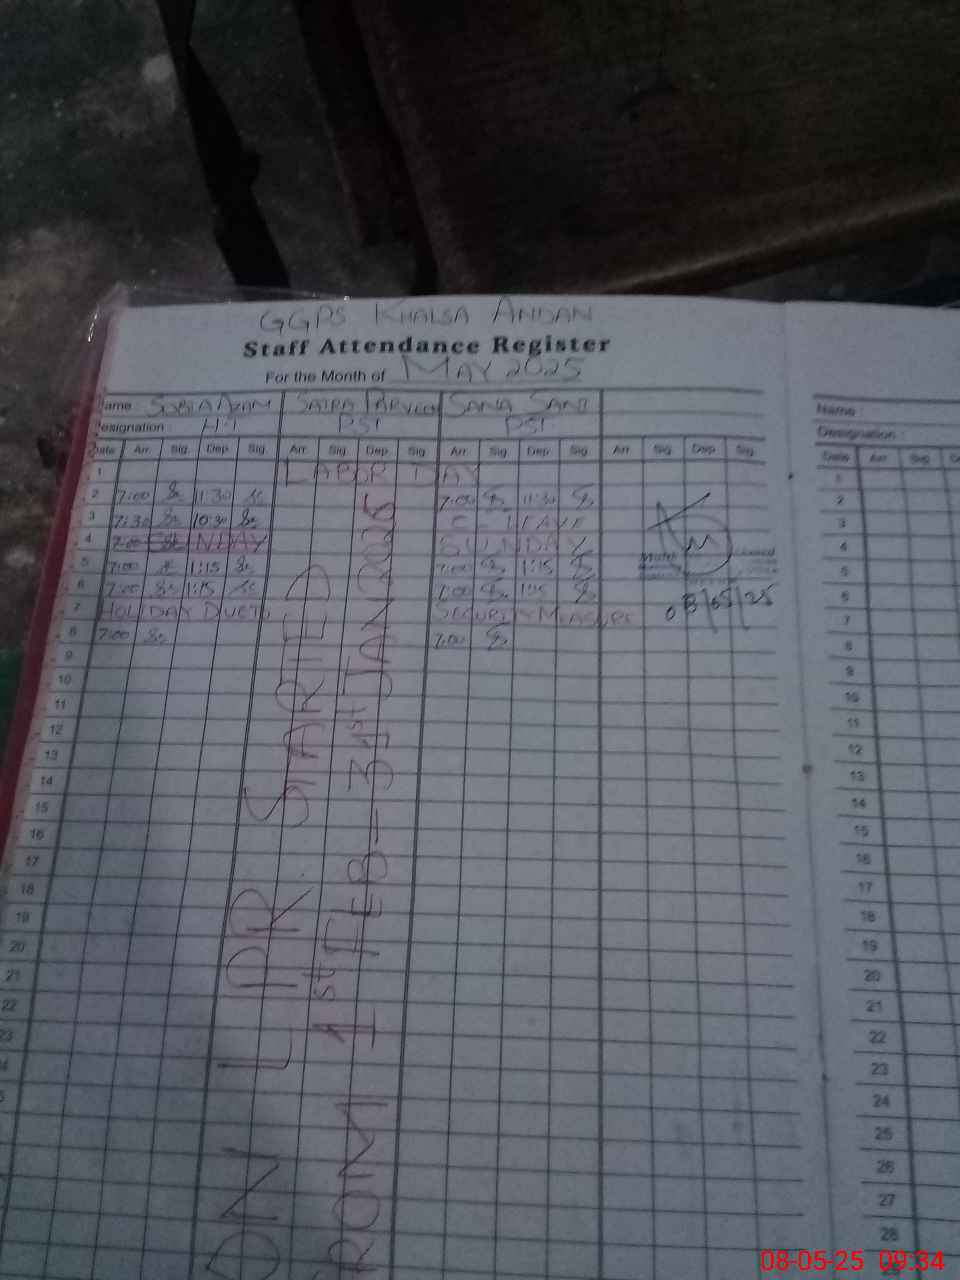 GGPS KHALSA ANDAN
Staff Attendance Register
For the Month of MAY 2025
ame SOBIA AZAM SAIRA PARVEEN SANA SANI
esignation : HT PST PST
Date Arr. Sig. Dep. Sig. Arr. Sig. Dep. Sig. Arr. Sig. Dep. Sig. Arr. Sig. Dep. Sig.
1 LABOR DAY
2 7:00 11:30 7:00 11:30
3 7:30 10:30 C-LEAVE
4 7:00 SUNDAY SUNDAY
5 7:00 1:15 7:00 1:15
6 7:00 1:15 7:00 1:15
7 HOLIDAY DUE TO SECURITY MEASURE
8 7:00 7:00
08/05/25
9
10
11
12
13
14
15
16
17
18
19
20
21
22
23
ON LPR STARTED
FROM 1st FEB - 31st JAN 2026
Name
Designation :
Date Arr. Sig.
1
2
3
4
5
6
7
8
9
10
11
12
13
14
15
16
17
18
19
20
21
22
23
24
25
26
27
28
08-05-25 09:34